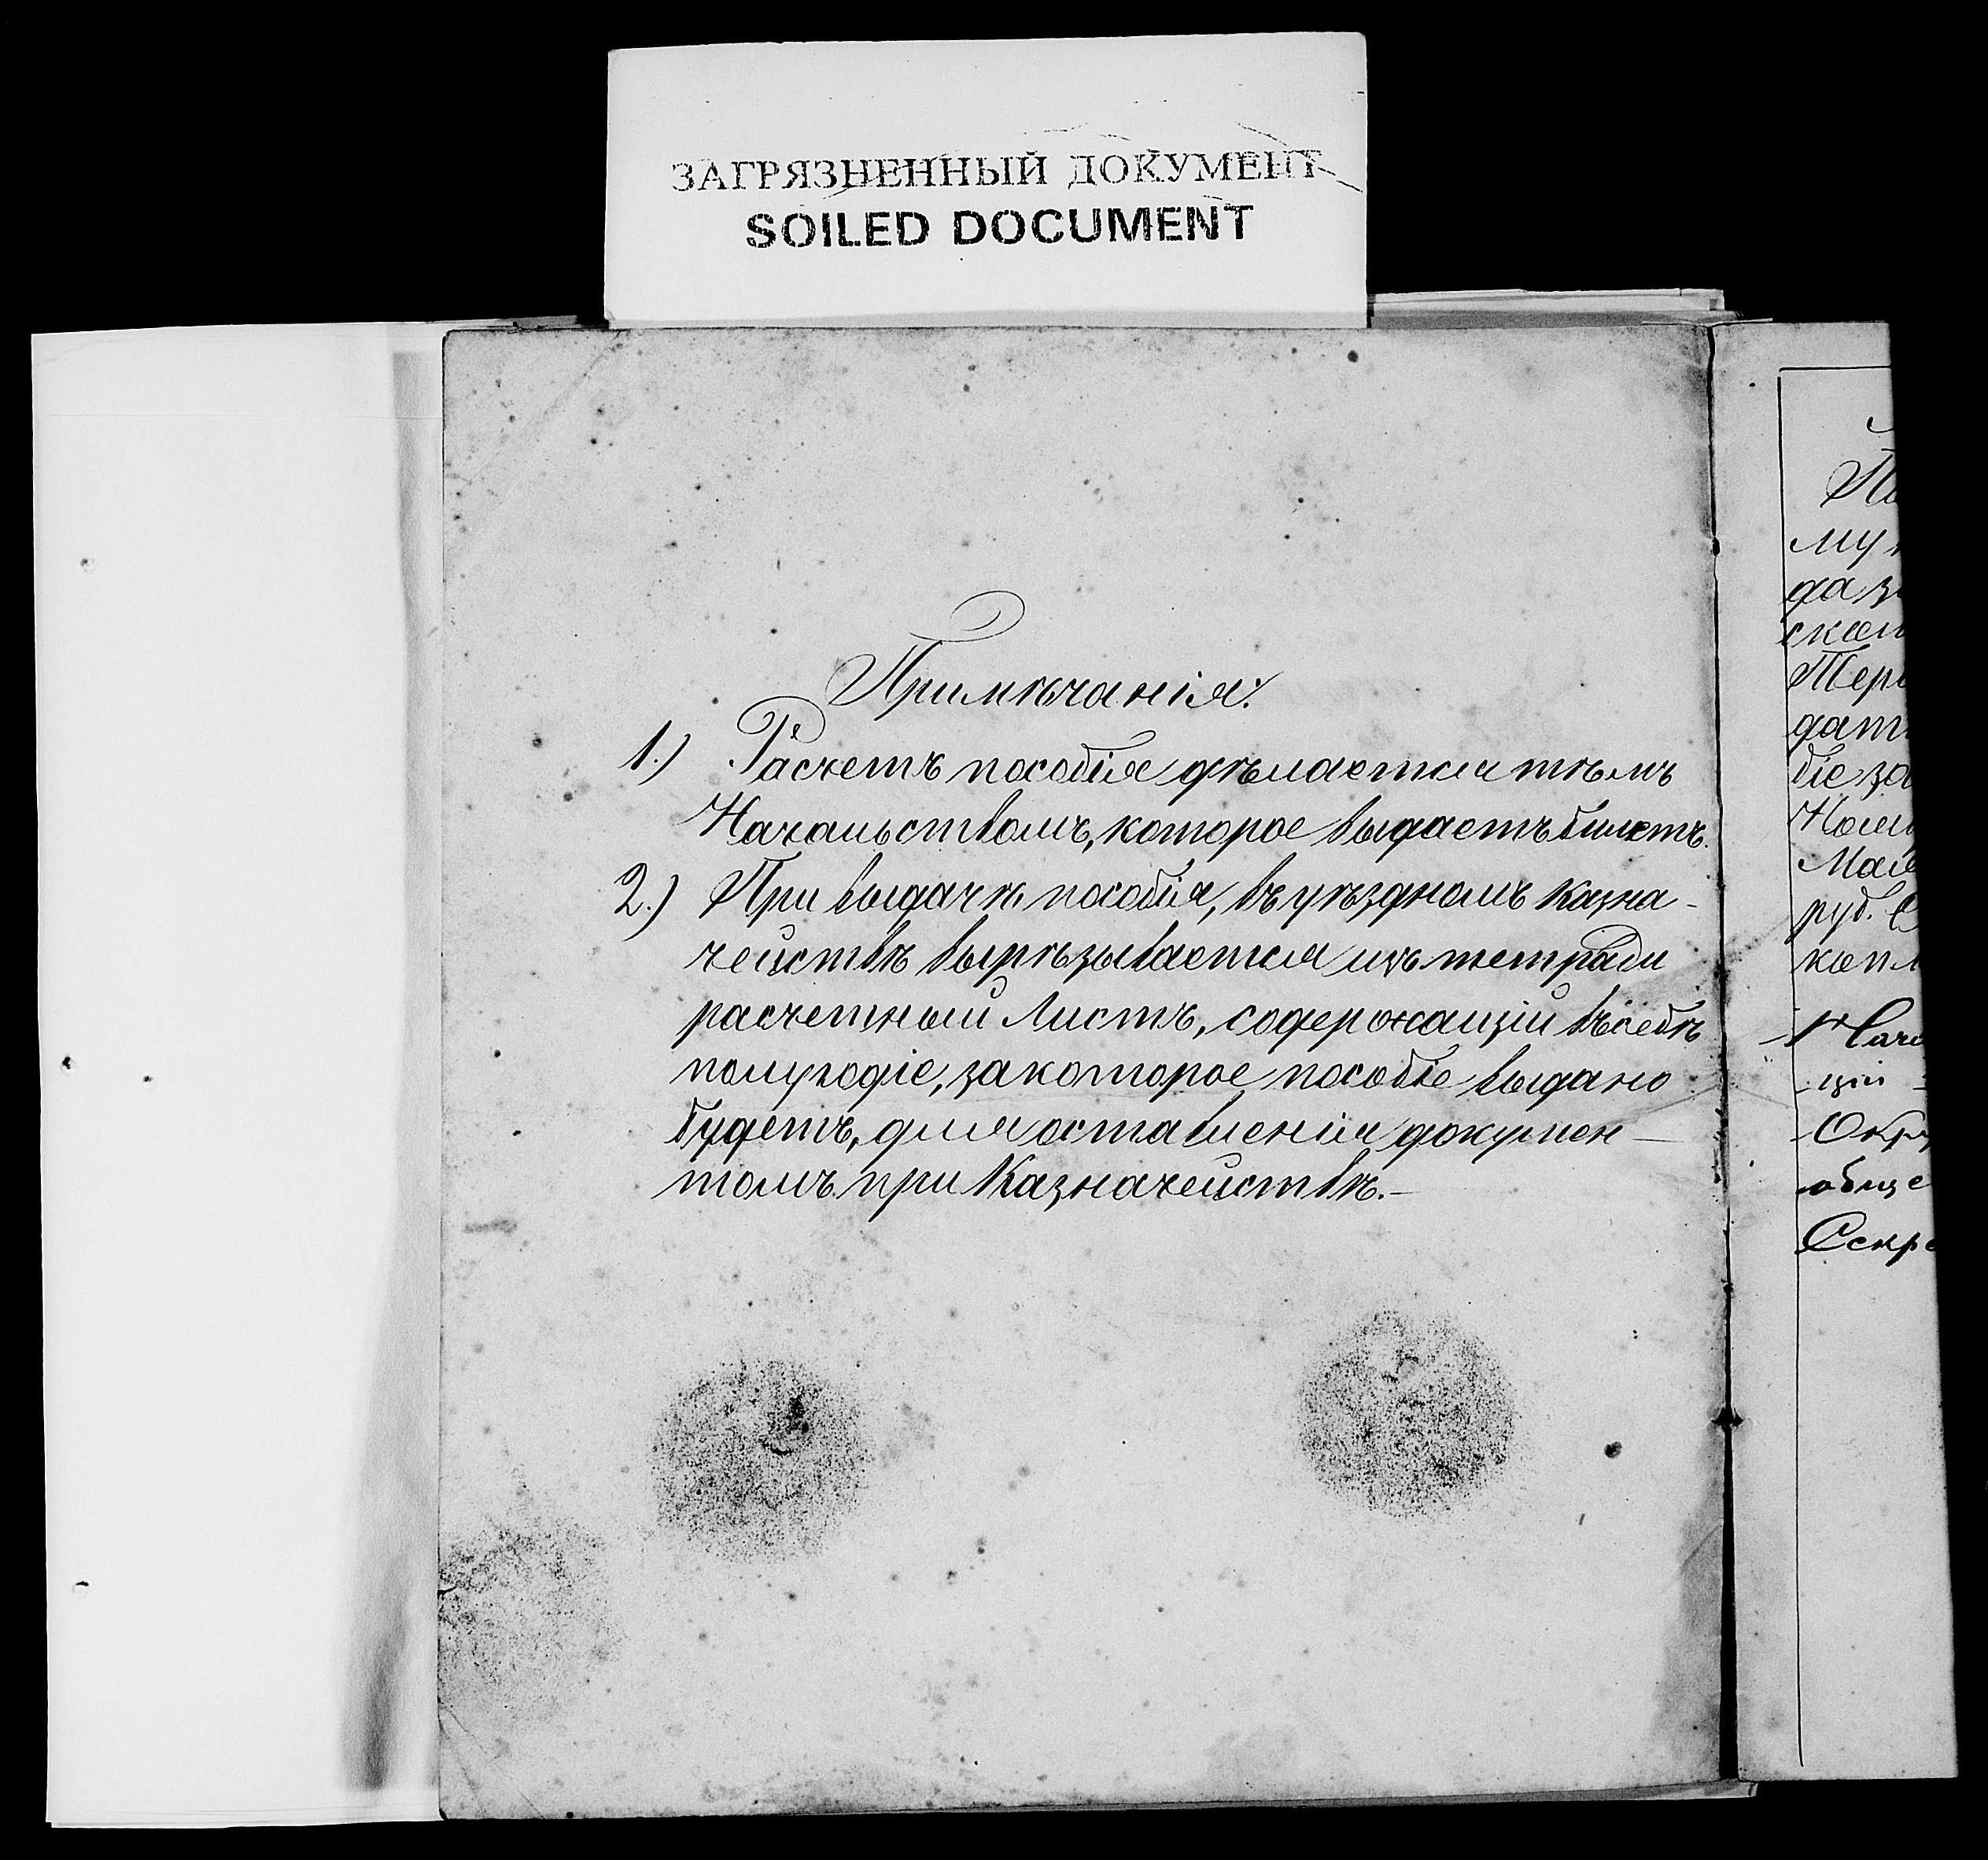 ЗАГРЯЗНЕННЫЙ ДОКУМЕНТ
SOILED DOCUMENT
Примѣчанія:
1.) Расчетъ пособія дѣлается тѣмъ
Начальствомъ, которое выдаетъ билетъ.
2.) При выдачѣ пособія, въ уѣздномъ казна-
чействѣ вырѣзывается изъ тетради
расчетный листъ, содержащій въ себѣ
полугодіе, за которое пособіе выдано
будетъ, для оставленія докумен-
томъ при Казначействѣ.-
му
да
скаго
дат
біе за
руб.
коп.
щій
Окру
обще
Секре